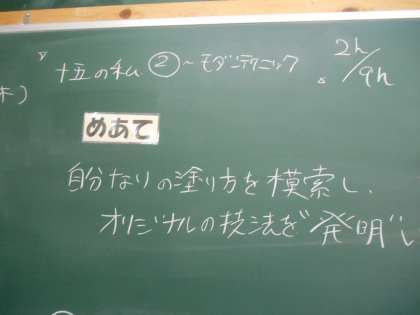 十五の私②~モダンテクニック 2h/9h
木)
めあて
自分なりの塗り方を模索し、
オリジナルの技法を“発明”し